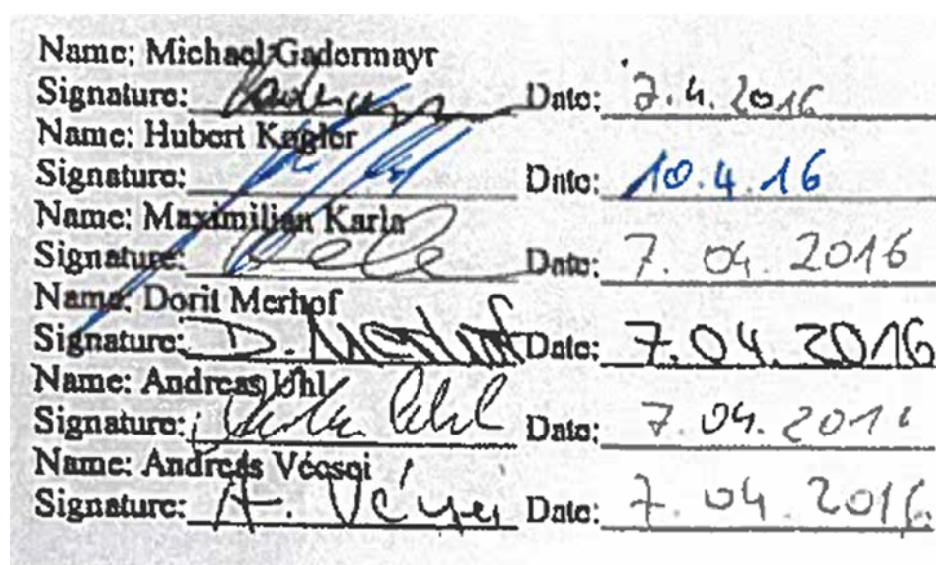 Name: Michael Gadermayr
Signature: Date: 7.4.2016
Name: Hubert Kogler
Signature: Date: 10.4.16
Name: Maximilian Karla
Signature: Date: 7. 04. 2016
Name: Dorit Merhof
Signature: D. Merhof Date: 7.04.2016
Name: Andreas Uhl
Signature: Andreas Uhl Date: 7.04.2016
Name: Andreas Vécsei
Signature: A. Vécsei Date: 7.04.2016